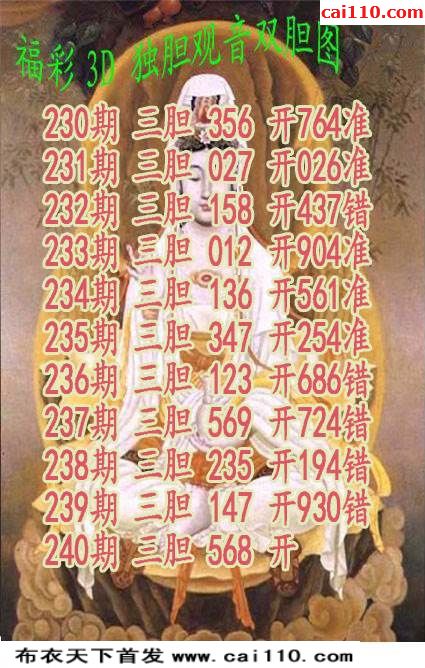 cai110.com
福彩 3D 独胆观音双胆图
230期 三胆 356 开764准
231期 三胆 027 开026准
232期 三胆 158 开437错
233期 三胆 012 开904准
234期 三胆 136 开561准
235期 三胆 347 开254准
236期 三胆 123 开686错
237期 三胆 569 开724错
238期 三胆 235 开194错
239期 三胆 147 开930错
240期 三胆 568 开
布衣天下首发 www.cai110.com